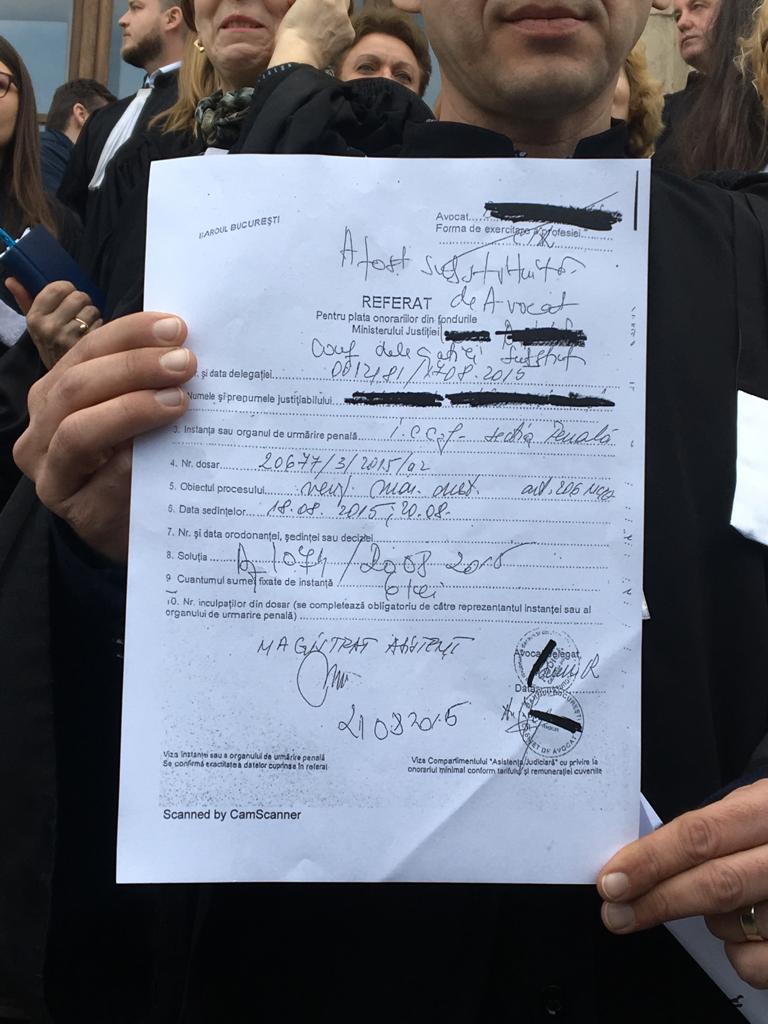 BAROUL BUCUREŞTI
Avocat
Forma de exercitare a profesiei
A fost substituit
REFERAT de Avocat
Pentru plata onorariilor din fondurile
Ministerului Justiţiei
Conf delegației substit
şi data delegaţiei 0012481/1708.2015
Numele şi prenumele justiţiabilului
3. Instanţa sau organul de urmărire penală I.C.C.J - Secția Penală
4. Nr. dosar 20677/3/2015/a2
5. Obiectul procesului art. 206 NCPP
6. Data şedinţelor 18.08.2015; 20.08.
7. Nr. şi data orodonanţei, şedinţei sau deciziei
8. Soluţia 1074/2008 2015
9 Cuantumul sumei fixate de instanţă 6 lei
10. Nr. inculpaţilor din dosar (se completează obligatoriu de către reprezentantul instanţei sau al
organului de urmarire penală)
MAGISTRAT ASISTENT
Avocat delegat,
Data
21082015
Viza instanţei sau a organului de urmărire penală
Se confirmă exactitatea datelor cuprinse în referat
Viza Compartimentului "Asistenţa Judiciară" cu privire la
onorariul minimal conform tarifului şi remuneraţiei cuvenite
Scanned by CamScanner